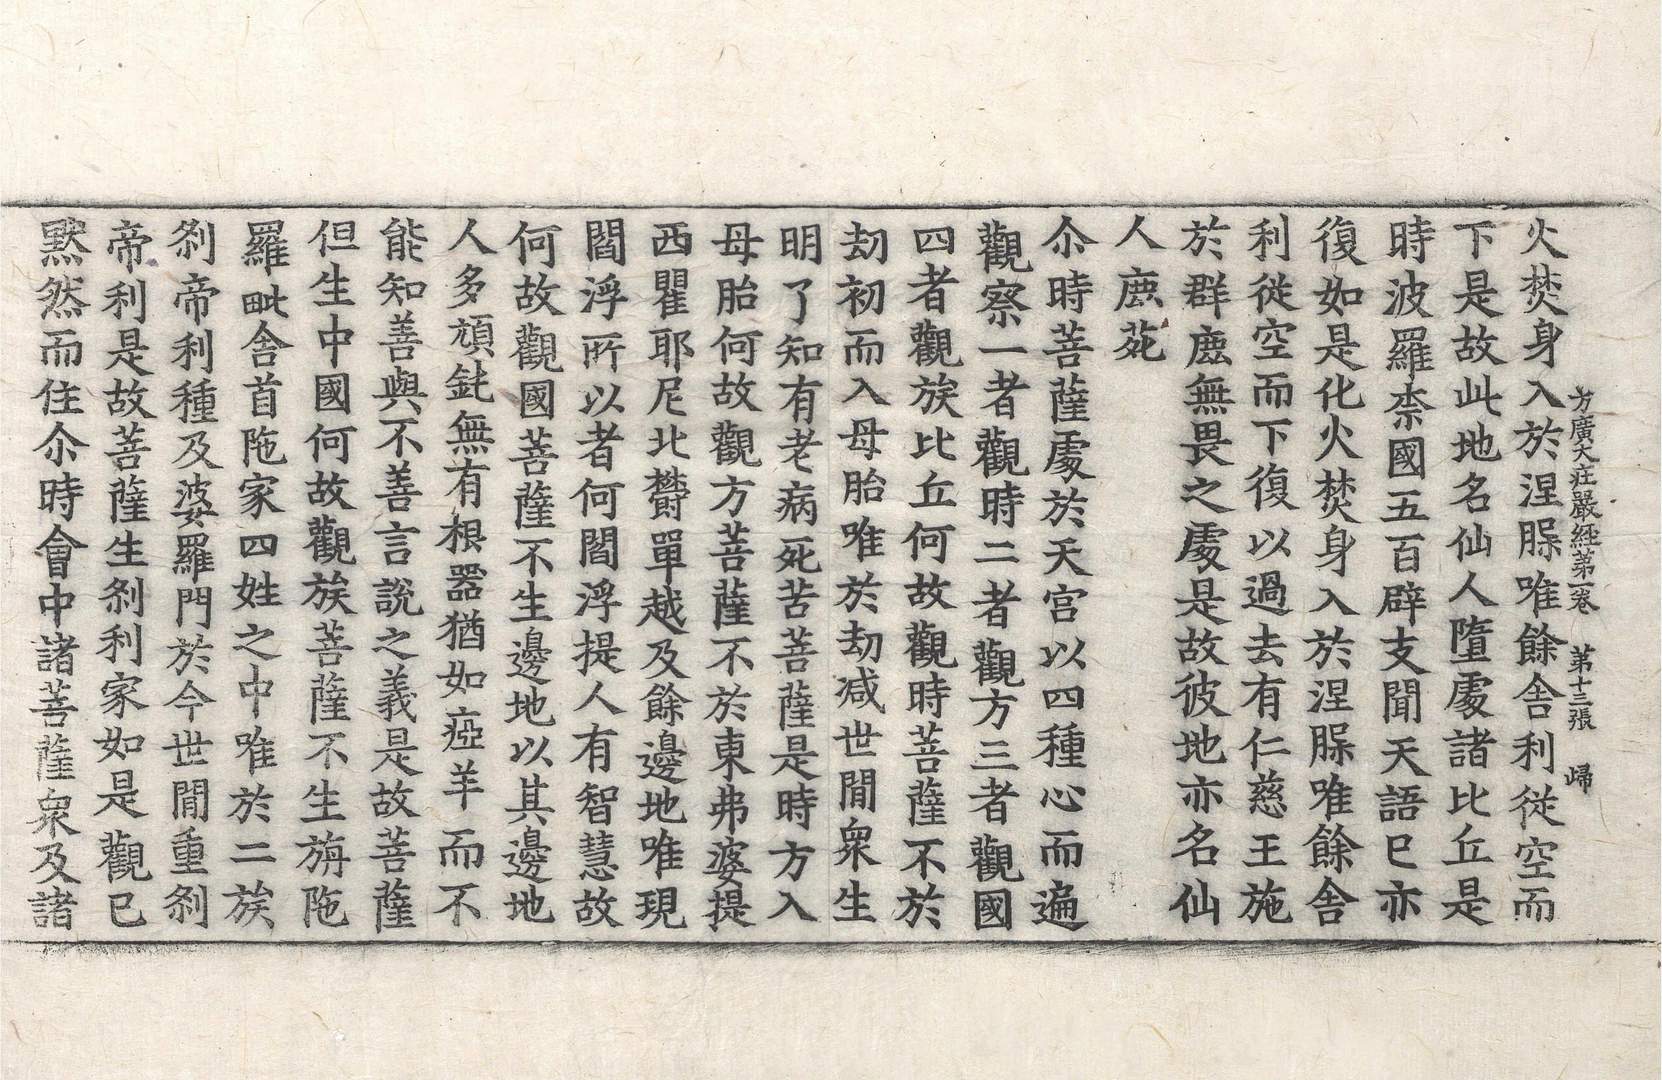 方廣大莊嚴經第一卷　第十三張　歸
火焚身入於涅槃唯餘舍利從空而
下是故此地名仙人墮處諸比丘是
時波羅柰國五百辟支聞天語已亦
復如是化火焚身入於涅槃唯餘舍
利從空而下復以過去有仁慈王施
於群鹿無畏之處是故彼地亦名仙
人鹿苑
尒時菩薩處於天宮以四種心而遍
觀察一者觀時二者觀方三者觀國
四者觀族比丘何故觀時菩薩不於
劫初而入母胎唯於劫減世間衆生
明了知有老病死苦菩薩是時方入
母胎何故觀方菩薩不於東弗婆提
西瞿耶尼北欝單越及餘邊地唯現
閻浮所以者何閻浮提人有智慧故
何故觀國菩薩不生邊地以其邊地
人多頑鈍無有根器猶如瘂羊而不
能知善與不善言說之義是故菩薩
但生中國何故觀族菩薩不生旃陁
羅毗舍首陁家四姓之中唯於二族
刹帝利種及婆羅門於今世間重刹
帝利是故菩薩生刹利家如是觀已
默然而住尒時會中諸菩薩衆及諸